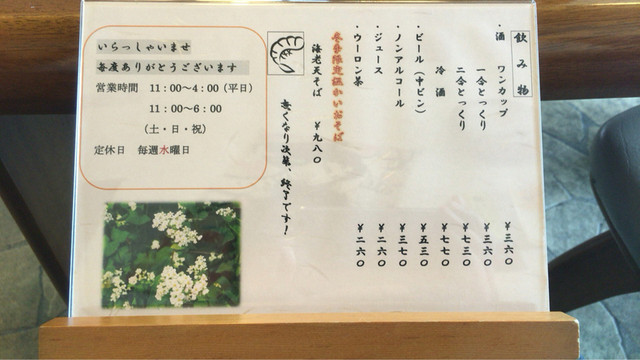 飲み物
・酒 ワンカップ ￥三六〇
一合とっくり ￥三六〇
二合とっくり ￥七三〇
冷酒 ￥七七〇
・ビール（中ビン） ￥五三〇
・ノンアルコール ￥三七〇
・ジュース ￥二六〇
・ウーロン茶 ￥二六〇
冬季限定温かいおそば
海老天そば ￥九八〇
無くなり次第、終了です！
いらっしゃいませ
毎度ありがとうございます
営業時間 11：00～4：00（平日）
11：00～6：00
（土・日・祝）
定休日 毎週水曜日